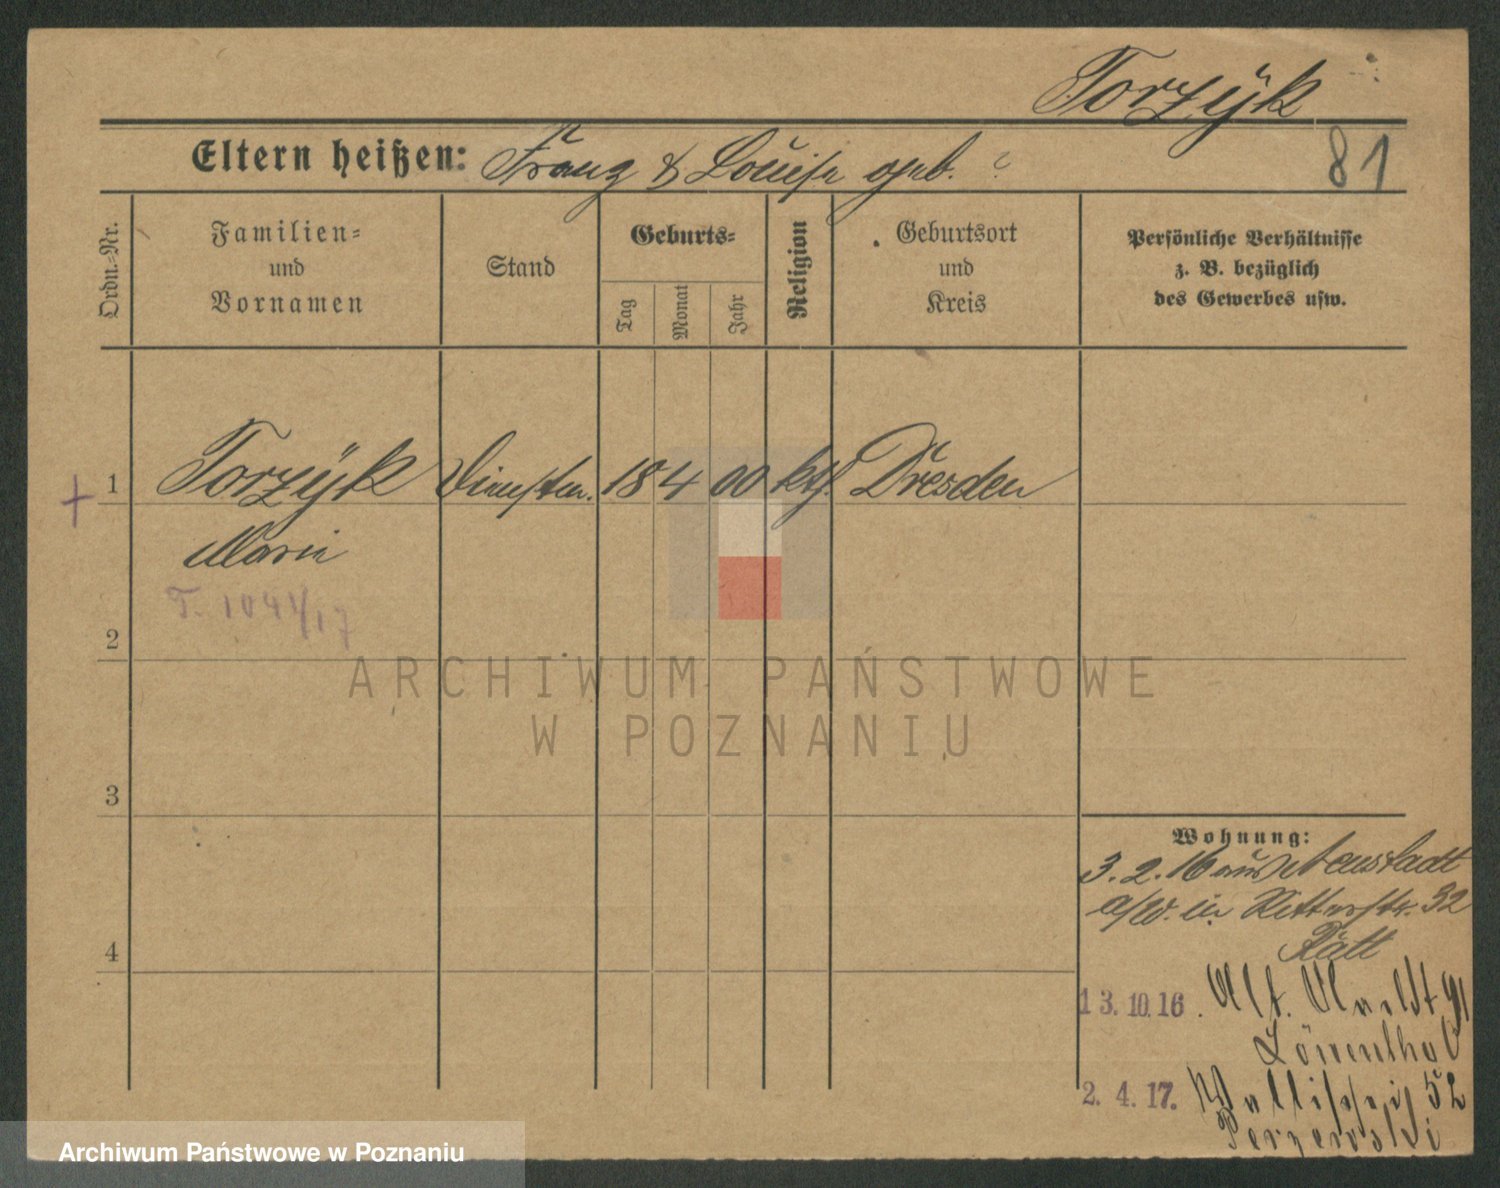 Torzÿk
81
Eltern heißen: Franz & Louise geb. ?
Ordn.-Nr.
Familien- und Vornamen
Stand
Geburts-
Tag
Monat
Jahr
Religion
Geburtsort und Kreis
Persönliche Verhältnisse
z. B. bezüglich
des Gewerbes usw.
1 Torzÿk Dienstm. 18 4 00 kth. Dresden
Marie
T. 1041/17
2
3
4
Wohnung:
3.2.16 aus Neustadt
a/W. in Ritterstr. 32
13.10.16. Alt. Markt 91
Löwenthal
2.4.17. Wallischei 52
ARCHIWUM PAŃSTWOWE
W POZNANIU
Archiwum Państwowe w Poznaniu